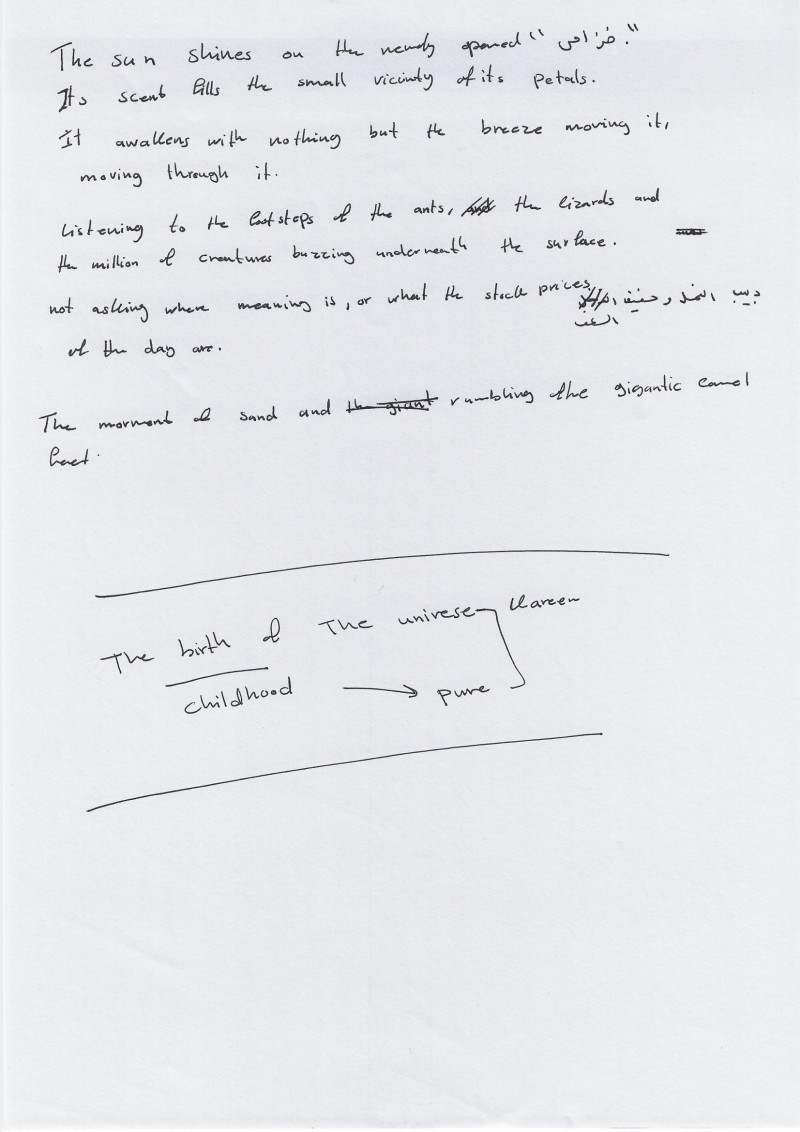 The sun shines on the newly opened "خزامى."
Its scent fills the small vicinity of its petals.
It awakens with nothing but the breeze moving it,
moving through it.
Listening to the footsteps of the ants, the lizards and
the million of creatures buzzing underneath the surface.
not asking where meaning is, or what the stock prices دبيب النمل و حفيف
of the day are.
The morment of sand and the giant rumbling of the gigantic camel
feet.
The birth of The univrese Kareem
childhood → pure